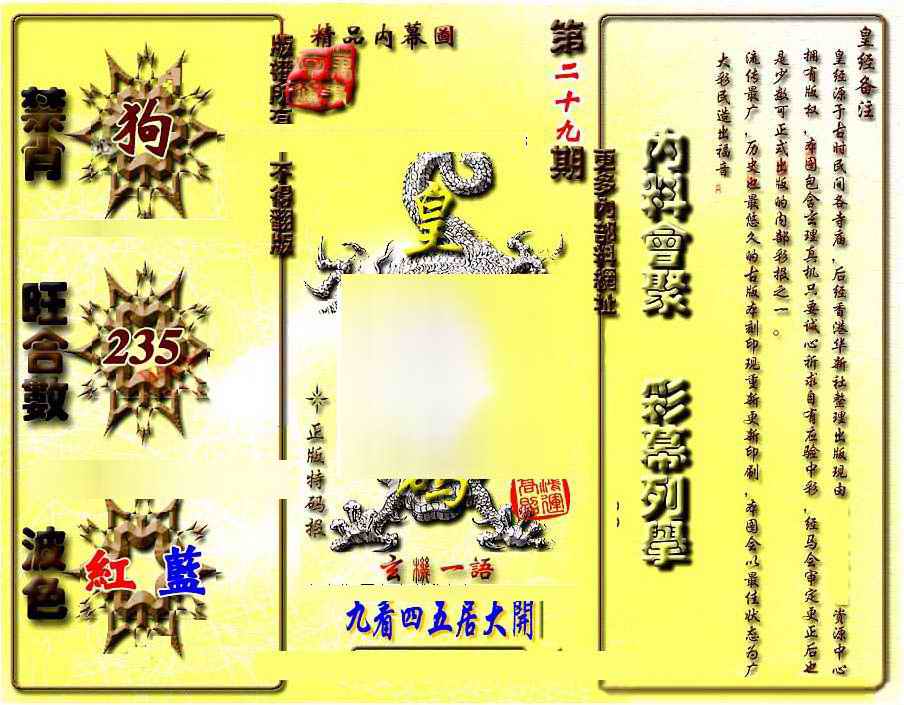 皇经备注
皇经源于古时民间各寺庙，后经香港华新社整理出版现由资源中心
拥有版权，本图包含玄理真机只要诚心祈求自有应验中彩，经马会审定更正后也
是少数可正式出版的内部彩报之一。
流传最广，历史也最悠久的古版本刻印现重新更新印刷，本图会以最佳状态为广
大彩民造出福音
内料會聚
彩幕列舉
更多內部料網址
第二十九期
精品内幕圖
版權所有
不得翻版
皇
正版特码报
鸿運
玄機一語
九看四五居大開
禁肖
狗
旺合數
235
波色
紅 藍